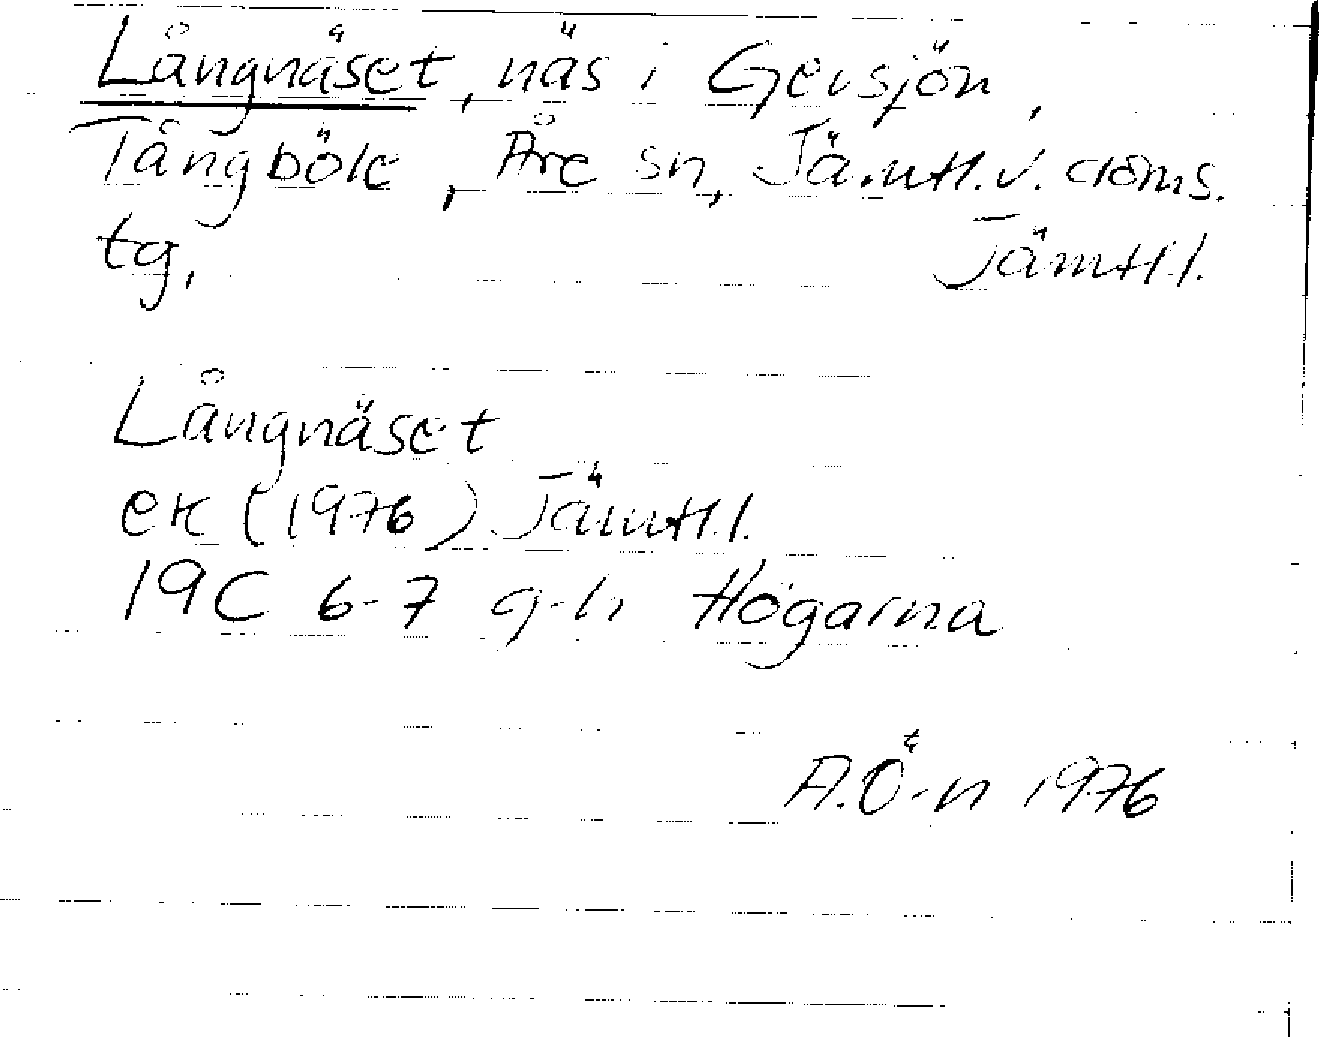 Långnäset, näs i Gevsjön,
Tångböle, Åre sn, Jämtl.v. doms.
tg, Jämtl.l.
Långnäset
ek (1976) Jämtl.l.
19C 6-7 g-h Högarna
A.Ö-n 1976